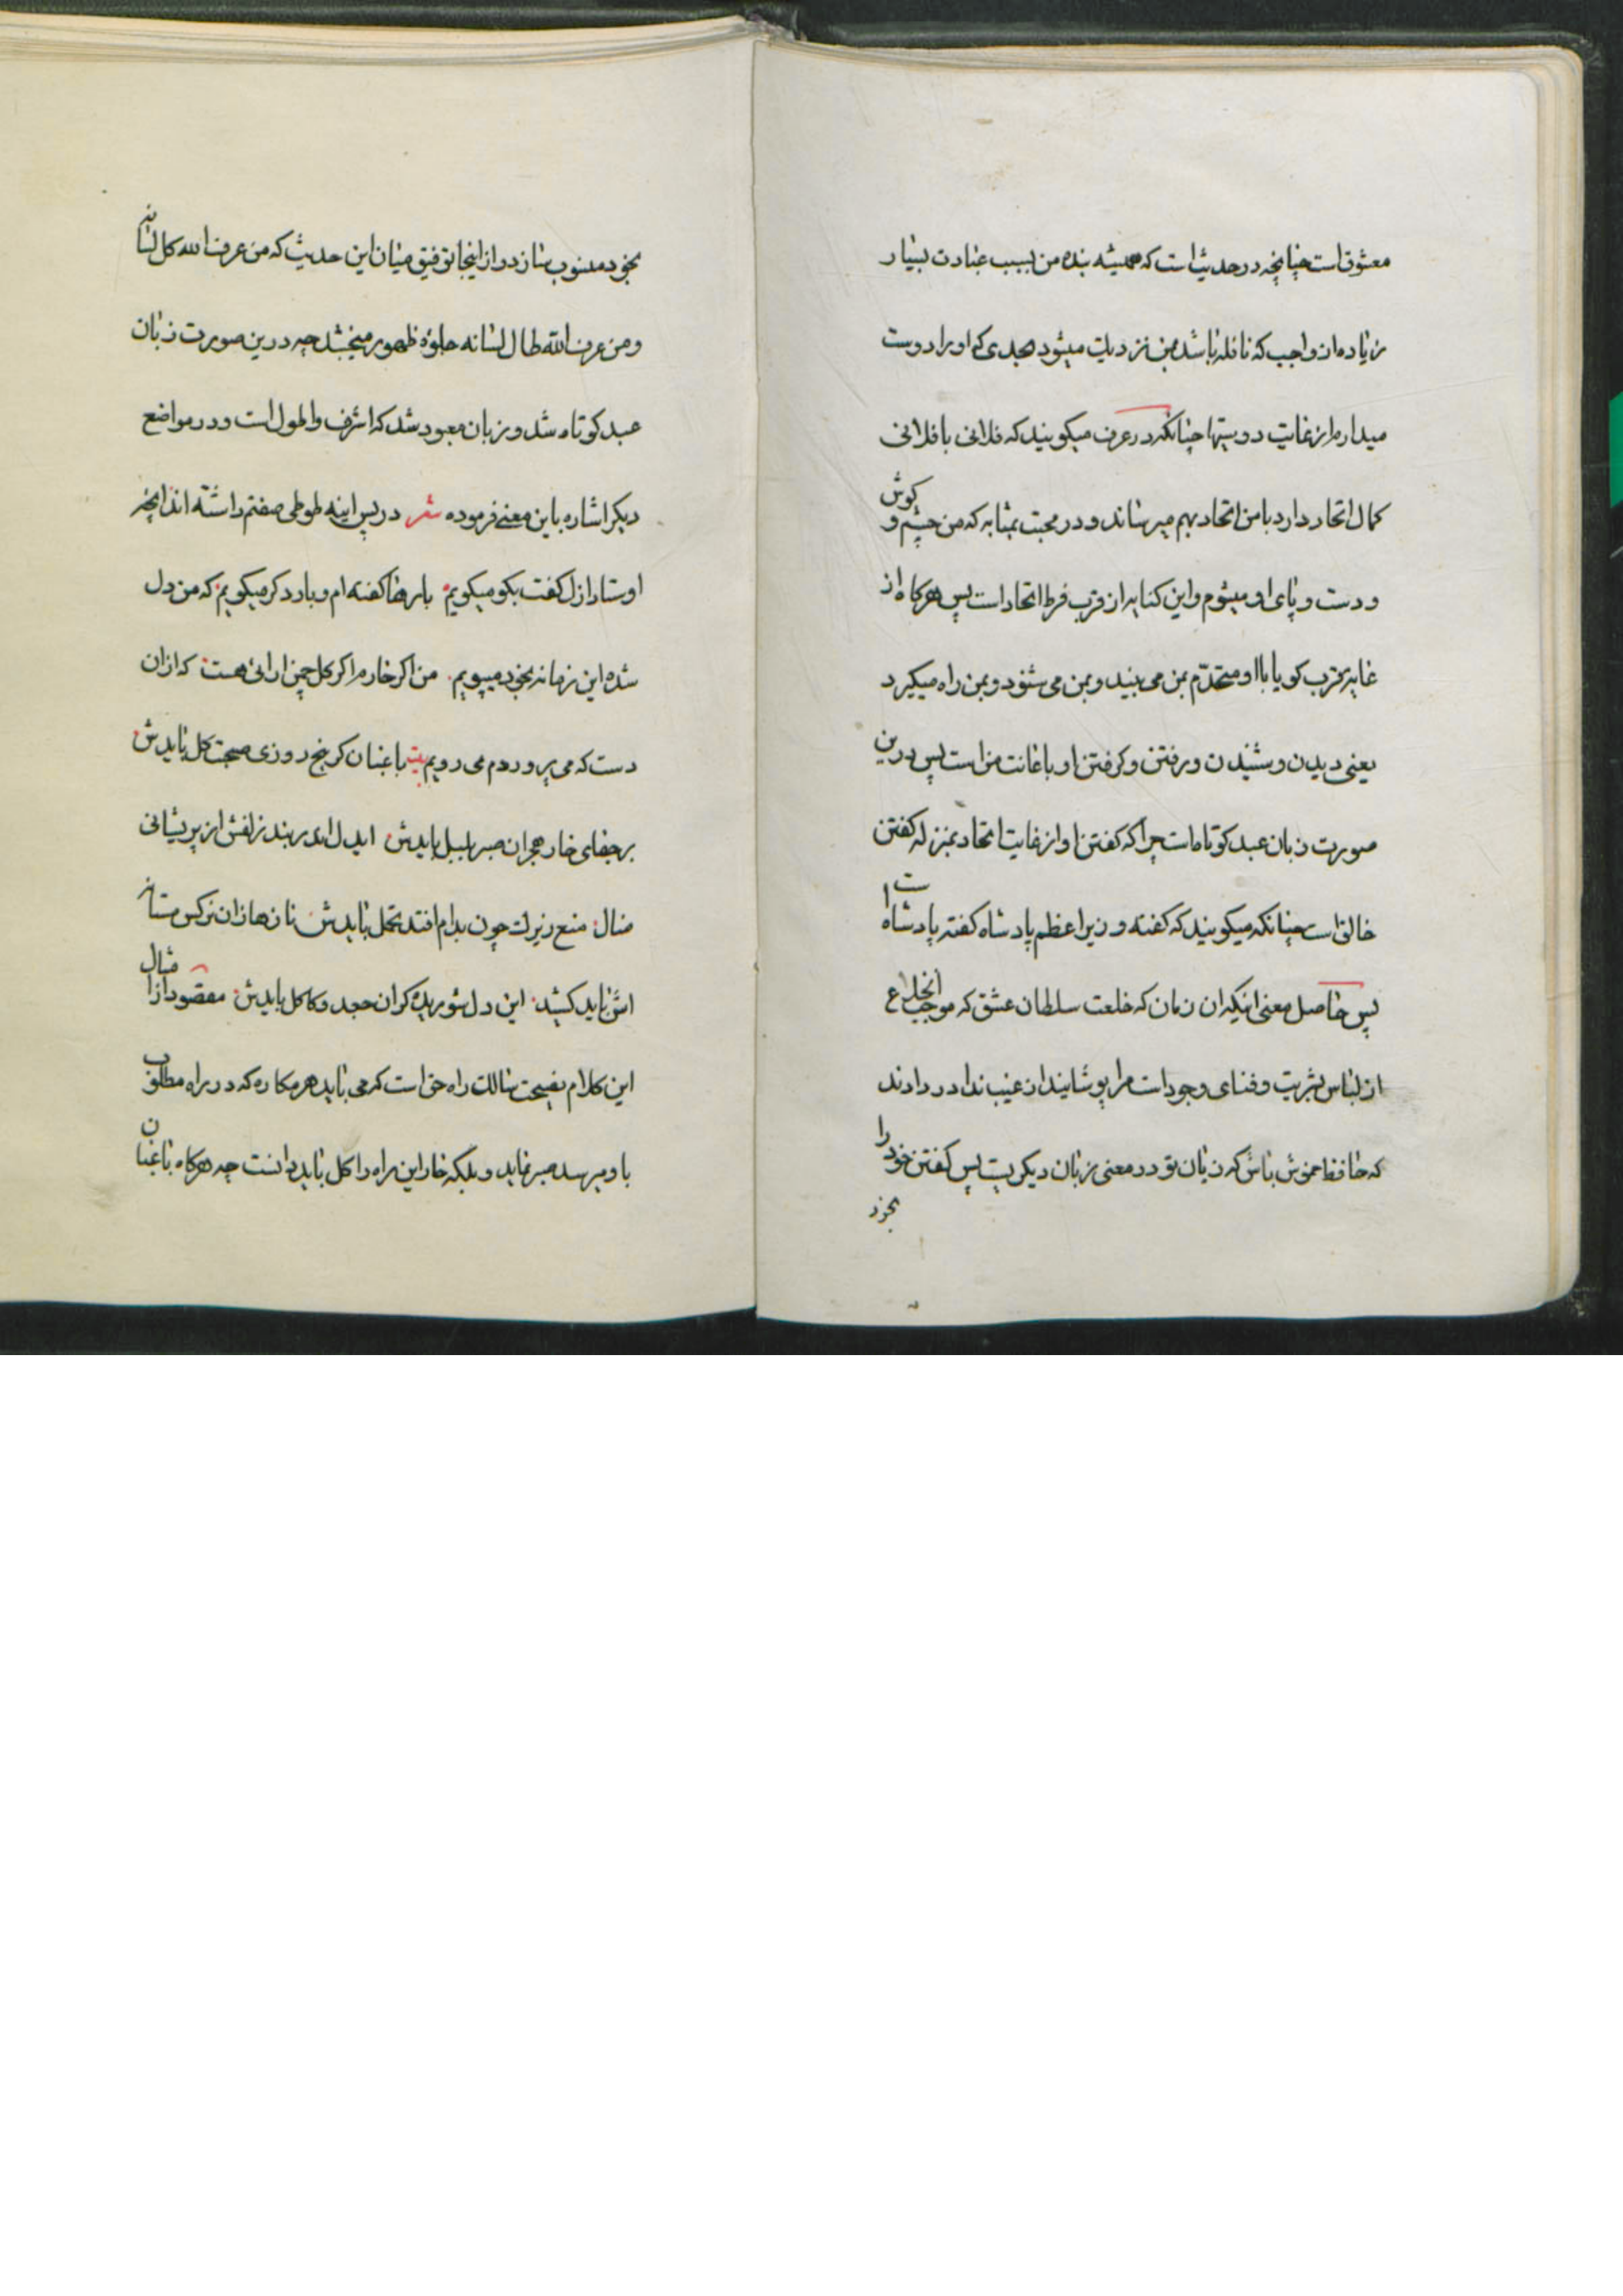 معشوق است چنانچه در حدیث است که همیشه بنده من بسبب عبادت بسیار
زیاده از واجب که نافله باشد بمن نزدیک میشود بحدی که او را دوست
میدارم از غایت دوستیها چنانکه در عرف میکویند که فلانی با فلانی
کمال اتحاد دارد با من اتحاد بهم میرساند و در محبت بمثابه که من چشم و کوش
و دست و پای او میشوم و این کنایه از قرب فرط اتحاد است پس هرکاه از
غایه قرب کویا با او متحدم بمن می بیند و بمن می شنود و بمن راه میکیرد
یعنی دیدن و شنیدن و رفتن و کرفتن او باعانت من است پس درین
صورت زبان عبد کوتاه است چرا که کفتن او از غایت اتحاد بمنزله کفتن
خالق است چنانکه میکویند که کفته وزیر اعظم پادشاه کفته پادشاه است
پس حاصل معنی اینکه ان زمان که خلعت سلطان عشق که موجب انخلاع
از لباس بشریت و فنای وجود است مرا پوشانیدند از غیب ندا در دادند
که حافظ خموش باش که زبان تو در معنی زبان دیکریست پس کفتن خود را
بخود
بخود منسوب مساز و از اینجا توفیق میان این حدیث که من عرف الله کل لسانه
و من عرف الله طال لسانه جلوه ظهور میبخشد چه درین صورت زبان
عبد کوتاه شد و زبان معبود شد که اشرف و اطول است و در مواضع
دیکر اشاره باین معنی فرموده شعر در پس اینه طوطی صفتم داشته اند انچه
اوستاد ازل کفت بکو میکویم بارها کفته ام و بار دکر میکویم که من دل
شده این ره نه بخود میپویم من اکر خارم اکر کل چمن ارائی هست که ازان
دست که می پروردم می رویم بیت باغبان کر پنج روزی صحبت کل بایدش
بر جفای خار هجران صبر بلبل بایدش ایدل اندر بند زلفش از پریشانی
منال مرغ زیرک چون بدام افتد تحمل بایدش نازها زان نرکس مستانه
اش باید کشید این دل شوریده کر ان جعد و کاکل بایدش مقصود از امثال
این کلام نصیحت سالک راه حق است که می باید هر مکاره که در راه مطلوب
باو میرسد صبر نماید و بلکه خار این راه را کل باید دانست چه هرکاه باغبان